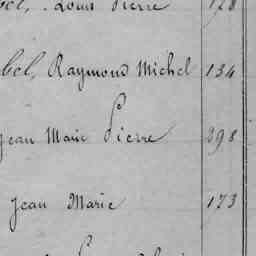 Louis Pierre 128
bel, Raymond Michel 134
Jean Marie Pierre 398
Jean Marie 173